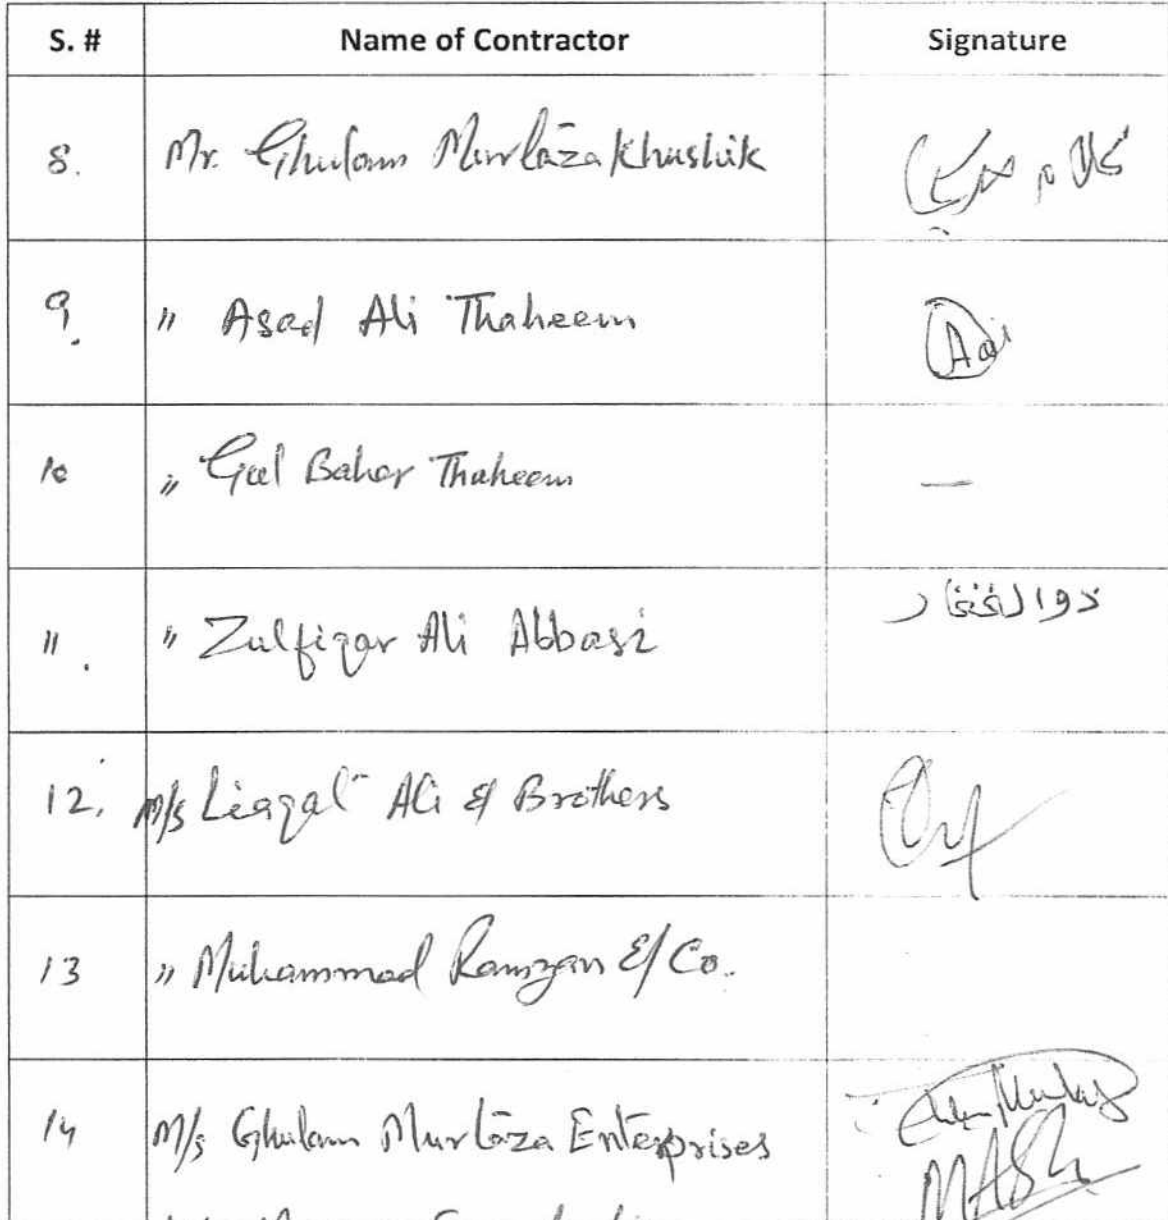 S. # Name of Contractor Signature
8. Mr. Ghulam Murtaza Khushik
9. " Asad Ali Thaheem
10 " Gul Bahar Thaheem —
11. " Zulfiqar Ali Abbasi ذوالفقار
12. M/s Liaqat Ali & Brothers
13 " Muhammad Ramzan & Co.
14 M/s Ghulam Murtaza Enterprises